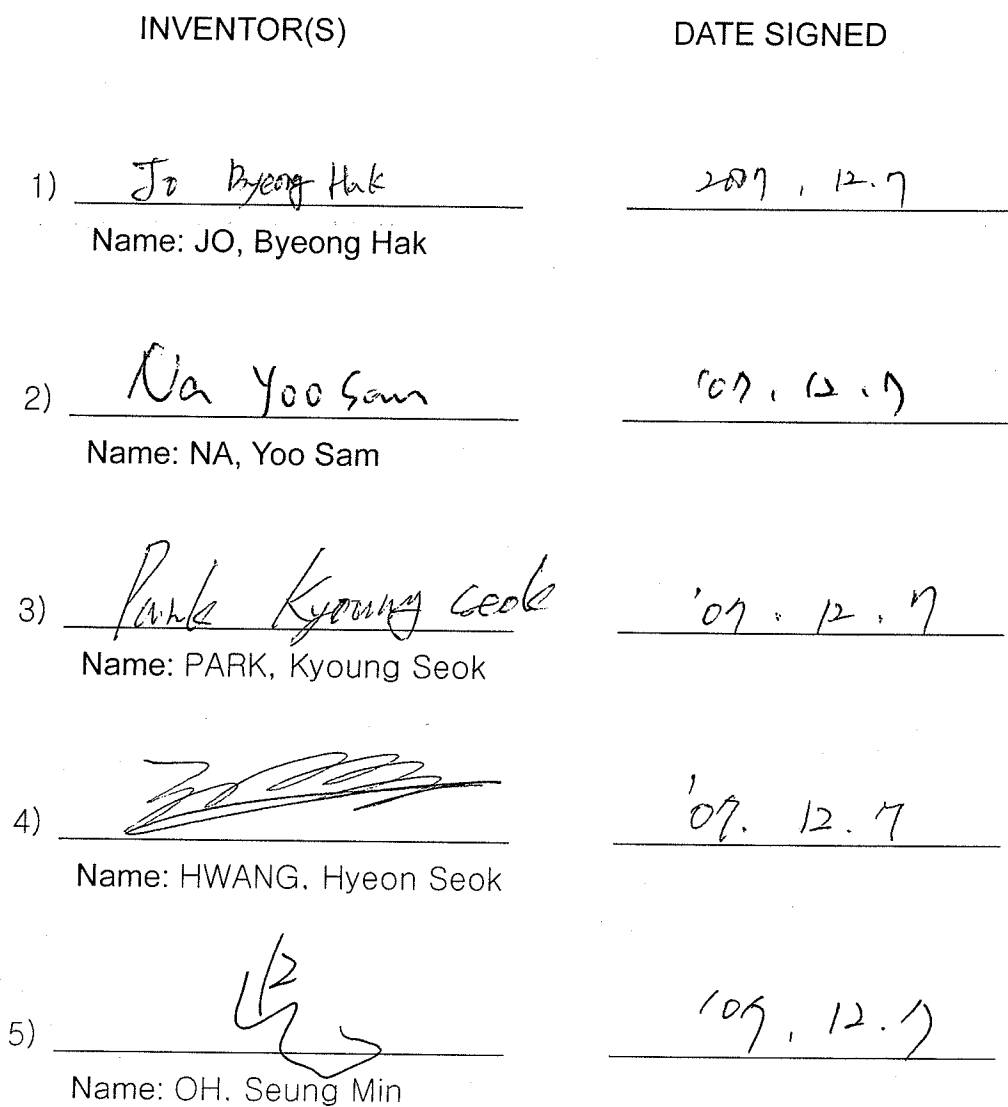 INVENTOR(S) DATE SIGNED
1) Jo Byeong Hak 2007, 12.7
Name: JO, Byeong Hak
2) Na Yoo Sam '07. 12.7
Name: NA, Yoo Sam
3) Park Kyoung Seok '07. 12.7
Name: PARK, Kyoung Seok
4) '07. 12.7
Name: HWANG. Hyeon Seok
5) '07. 12.7
Name: OH. Seung Min